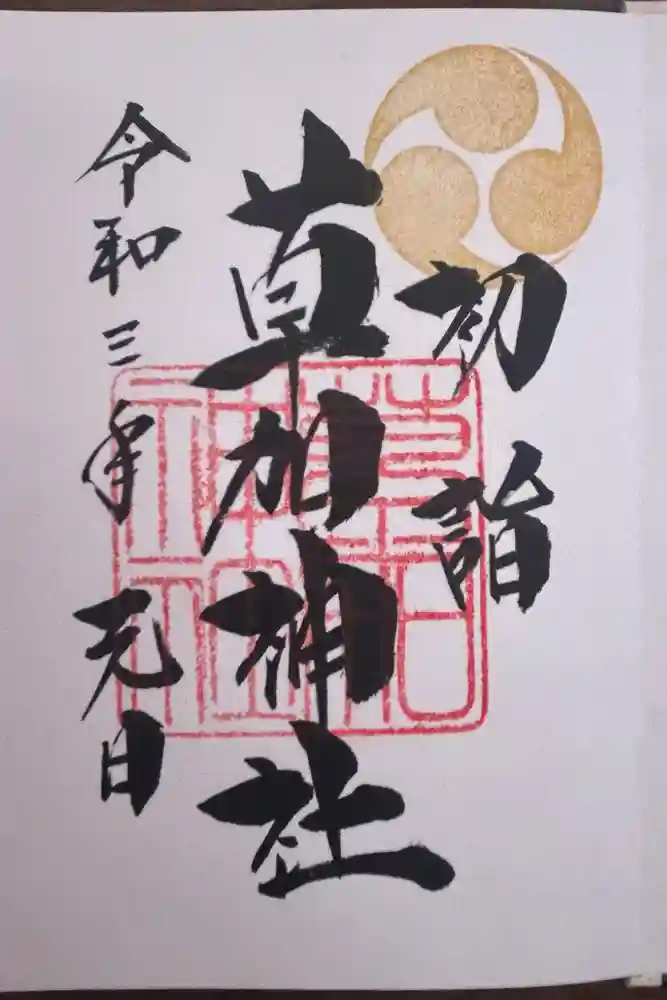 初詣
草加神社
令和三年元日